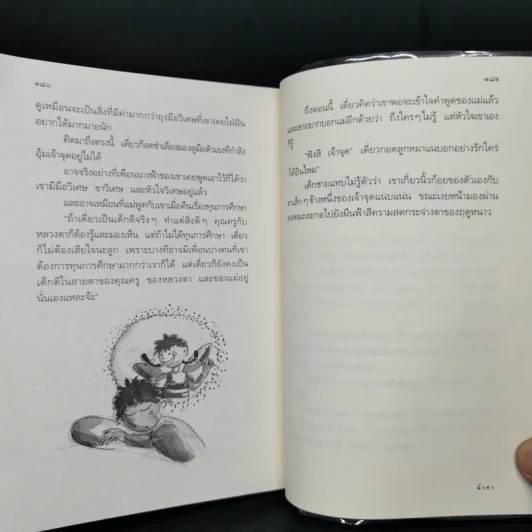 ๑๘๐
ดูเหมือนจะเป็นสิ่งที่มีค่ามากกว่าถุงมือวิเศษที่เขาเคยใฝ่ฝัน
อยากได้มากมายนัก
คิดมาถึงตรงนี้ เดี่ยวก็อดชำเลืองมองดูมือตัวเองที่กำลัง
อุ้มเจ้าจุดอยู่ไม่ได้
อาจจริงอย่างที่เพื่อนนางฟ้าของเขาเคยพูดเอาไว้ก็ได้ว่า
เขามีมือวิเศษ ขาวิเศษ และหัวใจวิเศษอยู่แล้ว
และอาจเหมือนที่แม่พูดกับเขาเมื่อคืนเรื่องทุนการศึกษา
“ถ้าเดี่ยวเป็นเด็กดีจริงๆ ทำแต่สิ่งดีๆ คุณครูกับ
หลวงตาก็ต้องรู้และมองเห็น แต่ถ้าไม่ได้ทุนการศึกษา เดี่ยว
ก็ไม่ต้องเสียใจนะลูก เพราะบางทีอาจมีเพื่อนบางคนที่เขา
ต้องการทุนการศึกษามากกว่าเราก็ได้ แต่เดี่ยวก็ยังคงเป็น
เด็กดีในสายตาของคุณครู ของหลวงตา และของแม่อยู่
นั่นเองแหละจ้ะ”
๑๘๑
ถึงตอนนี้ เดี่ยวคิดว่าเขาพอจะเข้าใจคำพูดของแม่แล้ว
และเขาอยากบอกแม่อีกด้วยว่า ถึงใครๆ ไม่รู้ แต่หัวใจเขาเอง
ก็รู้
“ฟังสิ เจ้าจุด” เดี่ยวกอดลูกหมาแนบอกอย่างรักใคร่
“ได้ยินไหม”
เด็กชายแทบไม่รู้ตัวว่า เขาเกี่ยวนิ้วก้อยของตัวเองกับ
ขาเล็กๆ ข้างหนึ่งของเจ้าจุดแนบแน่น ขณะเงยหน้ามองผ่าน
ยอดมะละกอไปยังผืนฟ้าสีครามสดกระจ่างตาของฤดูหนาว